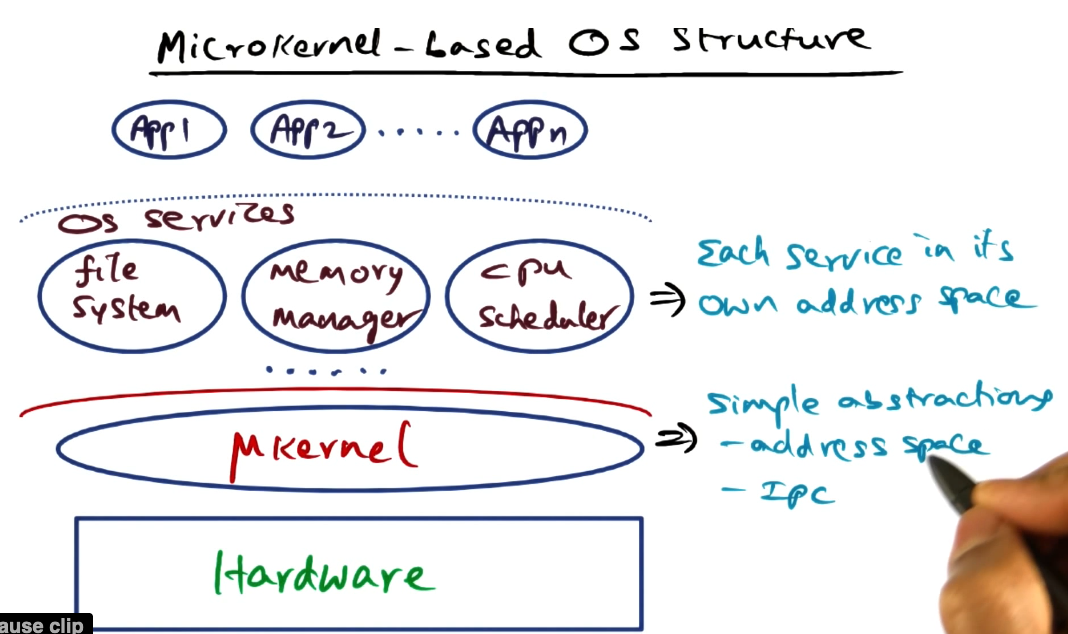 Microkernel-based OS Structure
App1 App2 ...... Appn
OS services
file system
memory manager
cpu scheduler
⇒ Each service in its own address space
......
μkernel
⇒ Simple abstractions
- address space
- IPC
Hardware
ause clip